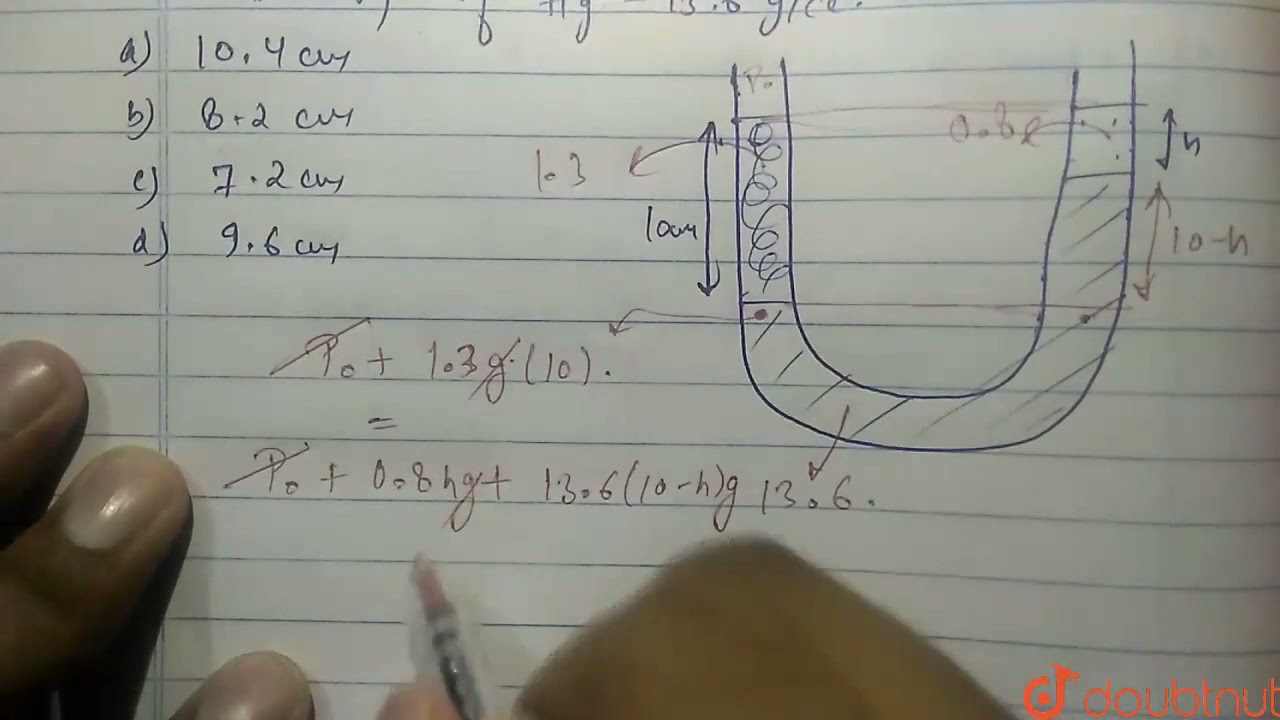 Hg = 13.6 g/cc.
a) 10.4 cm
b) 8.2 cm
c) 7.2 cm
d) 9.6 cm
P₀
0.8
h
1.3
10cm
10-h
P₀ + 1.3g.(10).
=
P₀ + 0.8hg + 13.6(10-h)g
13.6.
doubtnut